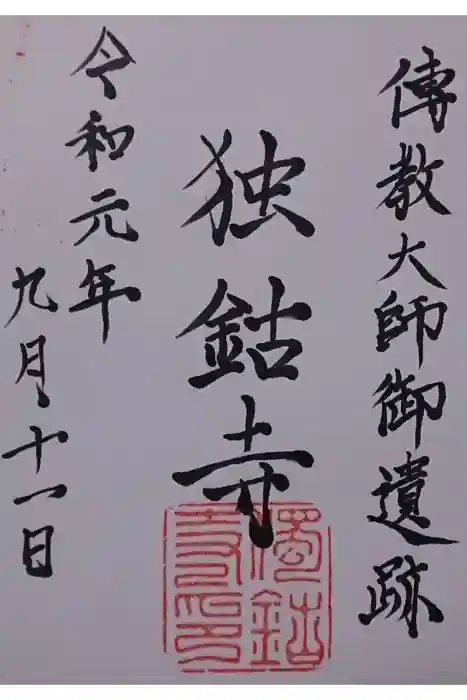 傳教大師御遺跡
独鈷寺
令和元年
九月十一日
獨鈷
寺印